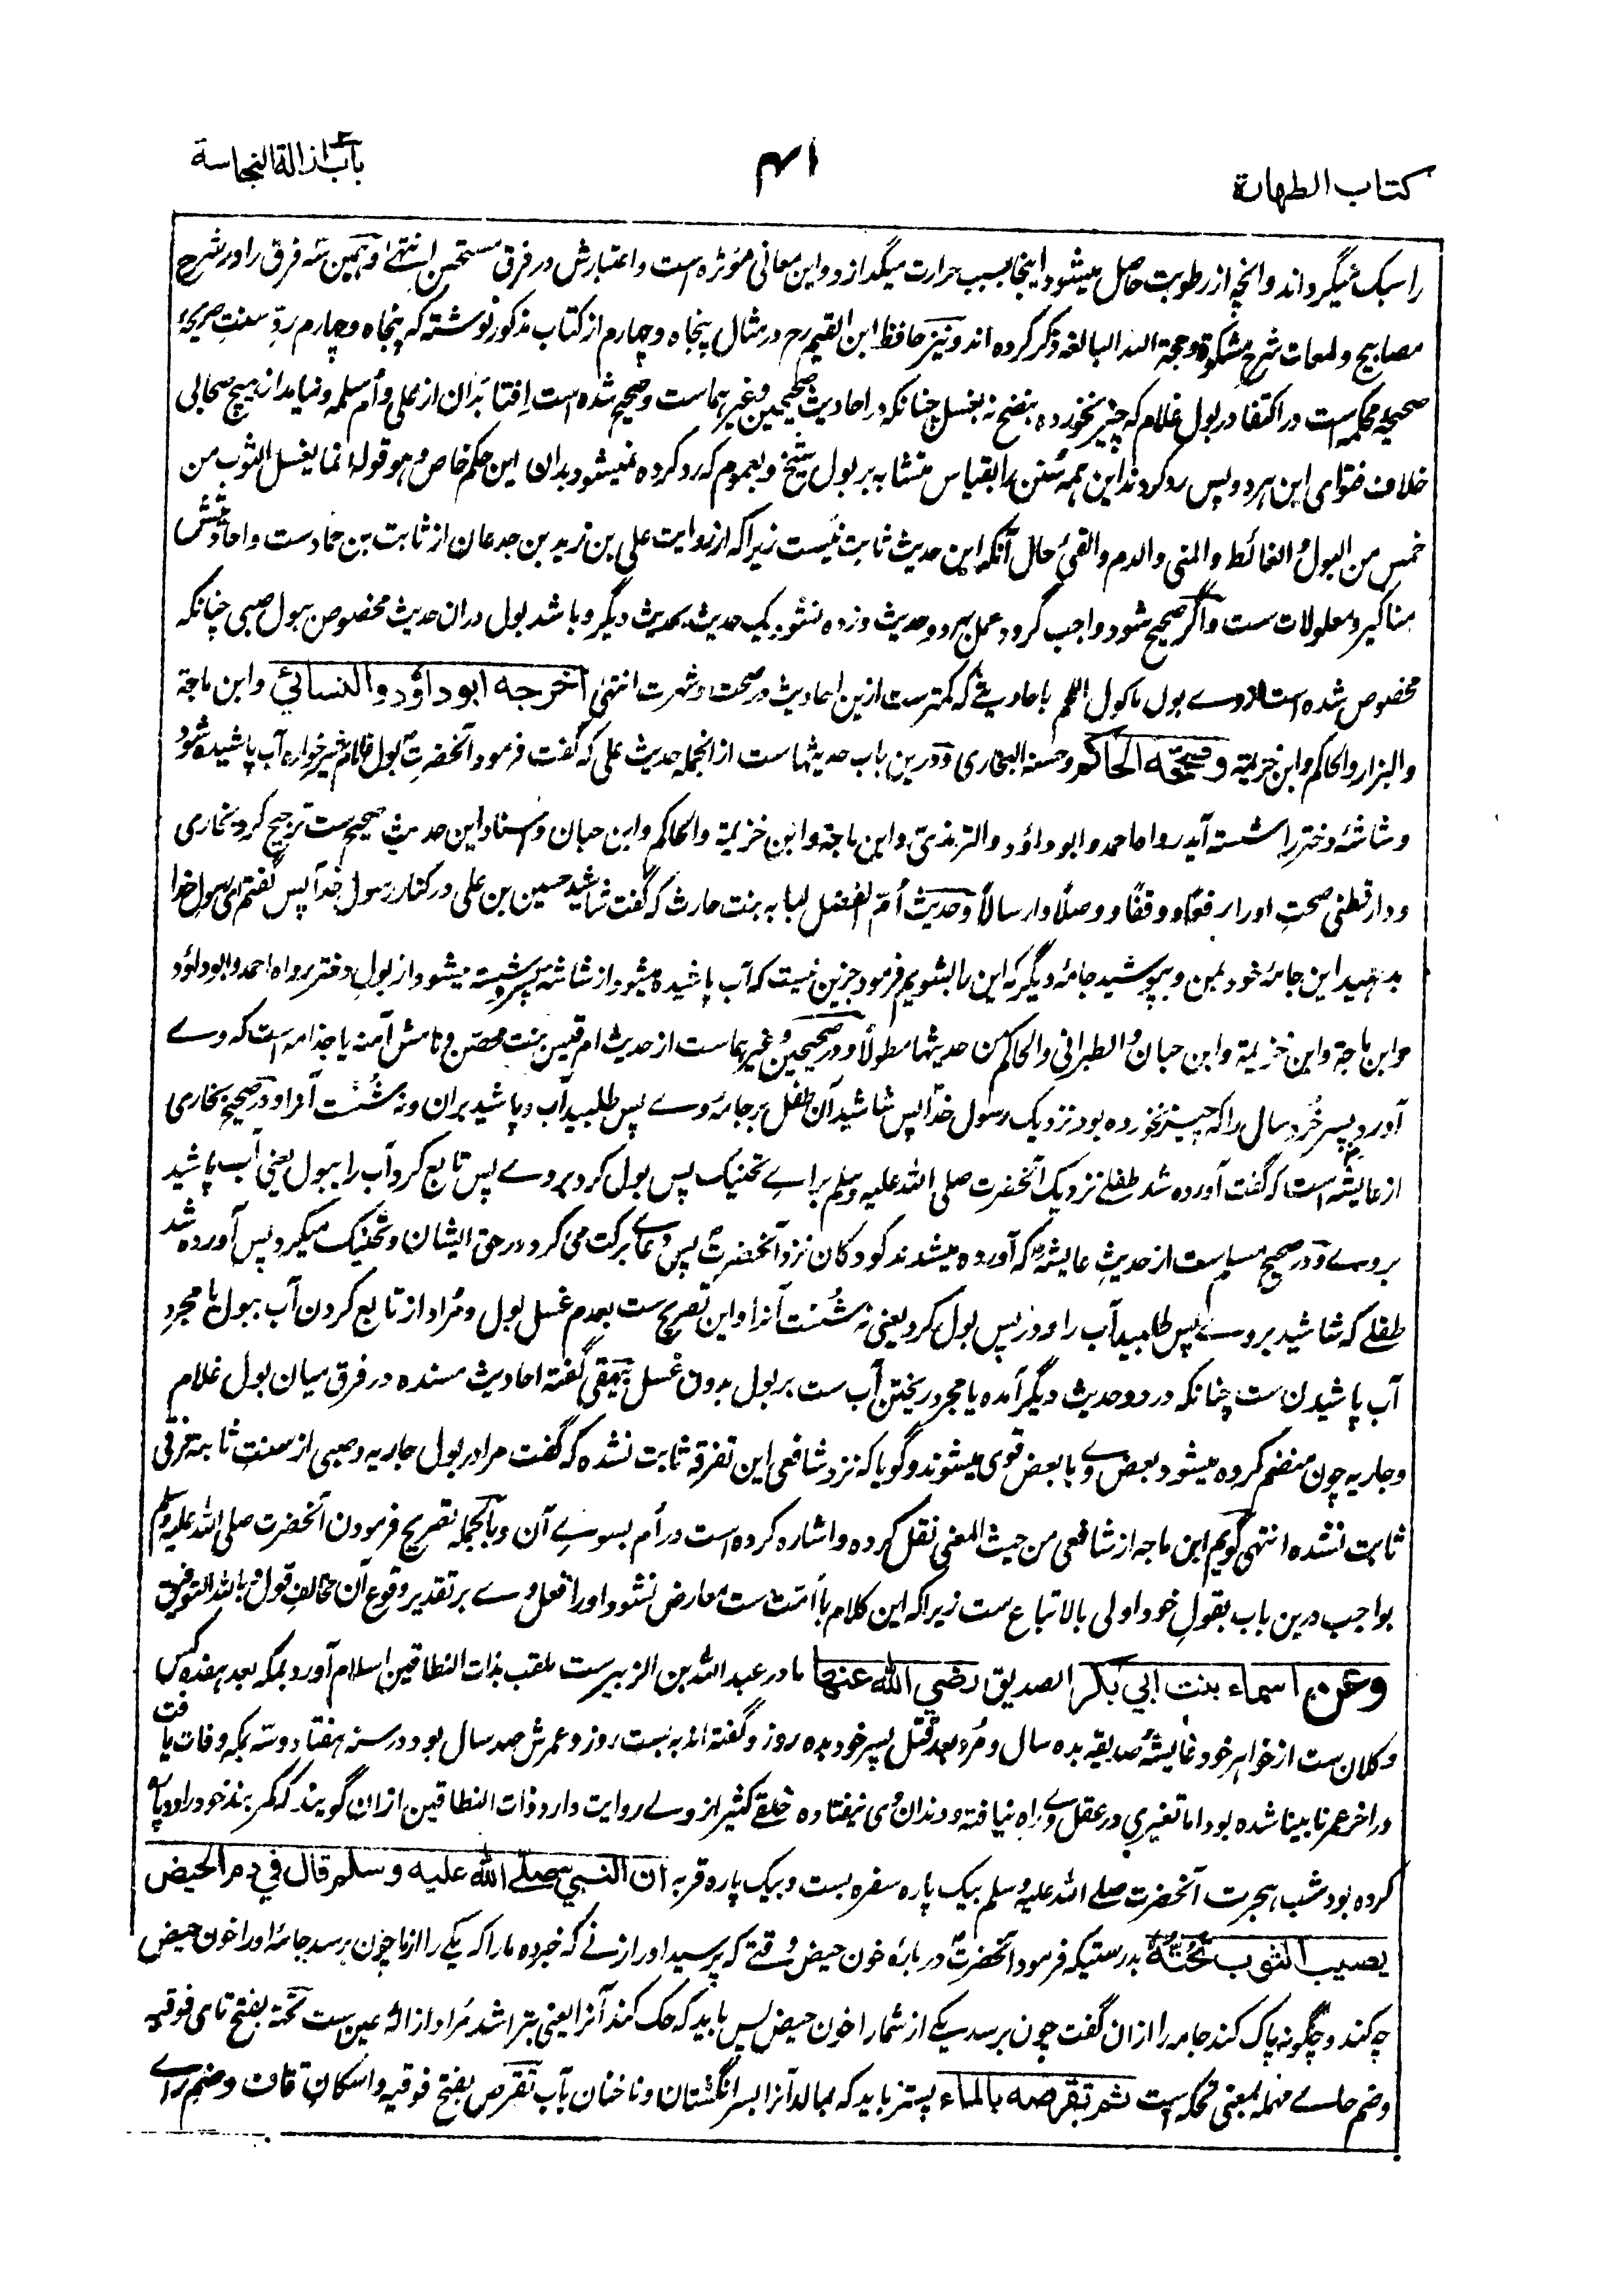 کتاب الطهارة
۴۱
باب ازالة النجاسة
را سبک نمیگرداند و انچه از رطوبت حاصل میشود اینجا بسبب حرارت میگدازد و این معانی مؤثره است و اعتبارش در فرق مستحسن انتهی و همین سه فرق را در شرح
مصابیح و لمعات شرح مشکوة و حجة الله البالغه ذکر کرده اند و نیز حافظ ابن القیم رح در مثال پنجاه و چهارم از کتاب مذکور نوشته که پنجاه و چهارم ردّ سنتِ صریحهٔ
صحیحهٔ محکمه است در اکتفا در بول غلام که چیزی نخورده بنضح نه بغسل چنانکه در احادیث صحیحین و غیرهماست و صحیح شده است اِفتا بدان از علی و اُم سلمه و نیامد از هیچ صحابی
خلاف فتوای این هر دو پس رد کردند این همه سُنن را بقیاس متشابه بر بول شیخ و بعموم که رد کرده نمیشود بدان این حکم خاص و هو قوله انما یغسل الثوب من
خمس من البول و الغائط و المنی و الدم و القئ حال آنکه این حدیث ثابت نیست زیرا که از روایت علی بن زید بن جدعان از ثابت بن حمادست و احادیثش
مناکیر و معلولات ست و اگر صحیح شود واجب گردد عمل بهر دو حدیث و زده نشود یک حدیث بحدیث دیگر و باشد بول دران حدیث مخصوص ببول صبی چنانکه
مخصوص شده است از وے بول ماکول اللحم باحادیثی که کمترست ازین احادیث در صحت و شهرت انتهی اخرجه ابوداؤد والنسائي و ابن ماجة
و البزار و الحاکم و ابن خزیمة وصححه الحاکم و حسنه البخاری و درین باب حدیثهاست ازانجمله حدیث علی که گفت فرمود آنحضرت بول غلام شیرخواره آب پاشیده شود
و شاشهٔ دختر را شسته آید رواه احمد و ابو داؤد و الترمذی و ابن ماجة و ابن خزیمة و الحاکم و ابن حبان و اسناد این حدیث صحیح ست ترجیح کرد بخاری
و دارقطنی صحتِ اورا رفعًا و وقفًا و وصلًا و ارسالًا و حدیث اُمّ الفضل لبابه بنت حارث که گفت شاشید حسین بن علی در کنار رسول خدا پس گفتم ای رسول خدا
بدهید این جامهٔ خود بمن و بپوشید جامهٔ دیگر که این را بشویم فرمود جزین نیست که آب پاشیده میشود از شاشهٔ پسر و شسته میشود از بولِ دختر رواه احمد و ابو داؤد
و ابن ماجة و ابن خزیمة و ابن حبان و الطبرانی و الحاکم من حدیثها مطولًا و در صحیحین و غیرهماست از حدیث ام قیس بنت محصن و نامش آمنه یا جذامه است که وے
آورد پسر خُرد سال را که چیزی نخورده بود نزدیک رسول خدا پس شاشید آن طفل بر جامهٔ وے پس طلبید آب و پاشید بران و نه شُست آنرا و در صحیح بخاری
از عایشه است که گفت آورده شد طفلے نزدیک آنحضرت صلی الله علیه وسلم براے تحنیک پس بول کرد بروے پس تابع کرد آب را ببول یعنی آب پاشید
بروے و در صحیح مسلم ست از حدیثِ عایشه که آورده میشدند کودکان نزد آنحضرت پس دعاے برکت می کرد در حق ایشان و تحنیک میکرد پس آورده شد
طفلے که شاشید بروے پس طلبید آب را و در پس بول کرد یعنی نه شُست آنرا و این تصریح ست بعدم غسل بول و مُراد از تابع کردن آب ببول یا مجردِ
آب پاشیدن ست چنانکه در دو حدیث دیگر آمده یا مجرد ریختن آب ست بر بول بدون غسل بیهقی گفته احادیث مسنده در فرق میان بول غلام
و جاریه چون منضم کرده میشود بعض وے با بعض قوی میشوند و گویا که نزد شافعی این تفرقه ثابت نشده که گفت مرا در بول جاریه و صبی از سنتِ ثابته فرقی
ثابت نشده انتهی گویم ابن ماجه از شافعی من حیث المعنی نقل کرده و اشاره کرده است در اُم بسوے آن و بالجمله تصریح فرمودن آنحضرت صلی الله علیه وسلم
بواجب درین باب بقولِ خود اولی بالاتباع ست زیرا که این کلام با اُمت ست معارض نشود اورا فعل وے بر تقدیر وقوع آن مخالفِ قول و بالله التوفیق
وعن اسماء بنت ابي بكر الصديق رضي الله عنها مادر عبد الله بن الزبیرست ملقب بذات النطاقین اسلام آورد بمکه بعد هفده کس
و کلان ست از خواهر خود عایشهٔ صدیقه بده سال و مُرد بعد قتل پسر خود بده روز و گفته اند به بست روز و عمرش صد سال بود در سنه هفتاد و سه بمکه وفات یافت
در اخر عمر نابینا شده بود اما تغیری در عقل وے راه نیافته و دندان وی نیفتاده خلقے کثیر از وے روایت دارد ذات النطاقین ازان گویند که کمربند خود را دو پاره
کرده بود شب هجرت آنحضرت صلے الله علیه وسلم بیک پاره سفره بست و بیک پاره قربه ان النبي صلے الله عليه وسلم قال في دم الحيض
يصيب الثوب تحُتُّه بدرستیکه فرمود آنحضرت در بارهٔ خون حیض وقتے که پرسید اورا زنے که خبر ده مارا که یکے را از ما چون برسد جامهٔ اورا خون حیض
چه کند و چگونه پاک کند جامه را ازان گفت چون برسد یکے از شما را خون حیض پس باید که حک کند آنرا یعنی بتراشد مُراد ازالهٔ عین ست تحته بفتح تاے فوقیه
و ضم حاے مهمله بمعنی تحکه است ثم تقرصه بالماء پستر باید که بمالد آنرا بسر انگشتان و ناخنان بآب تقرص بفتح فوقیه و اسکان قاف و ضم راے